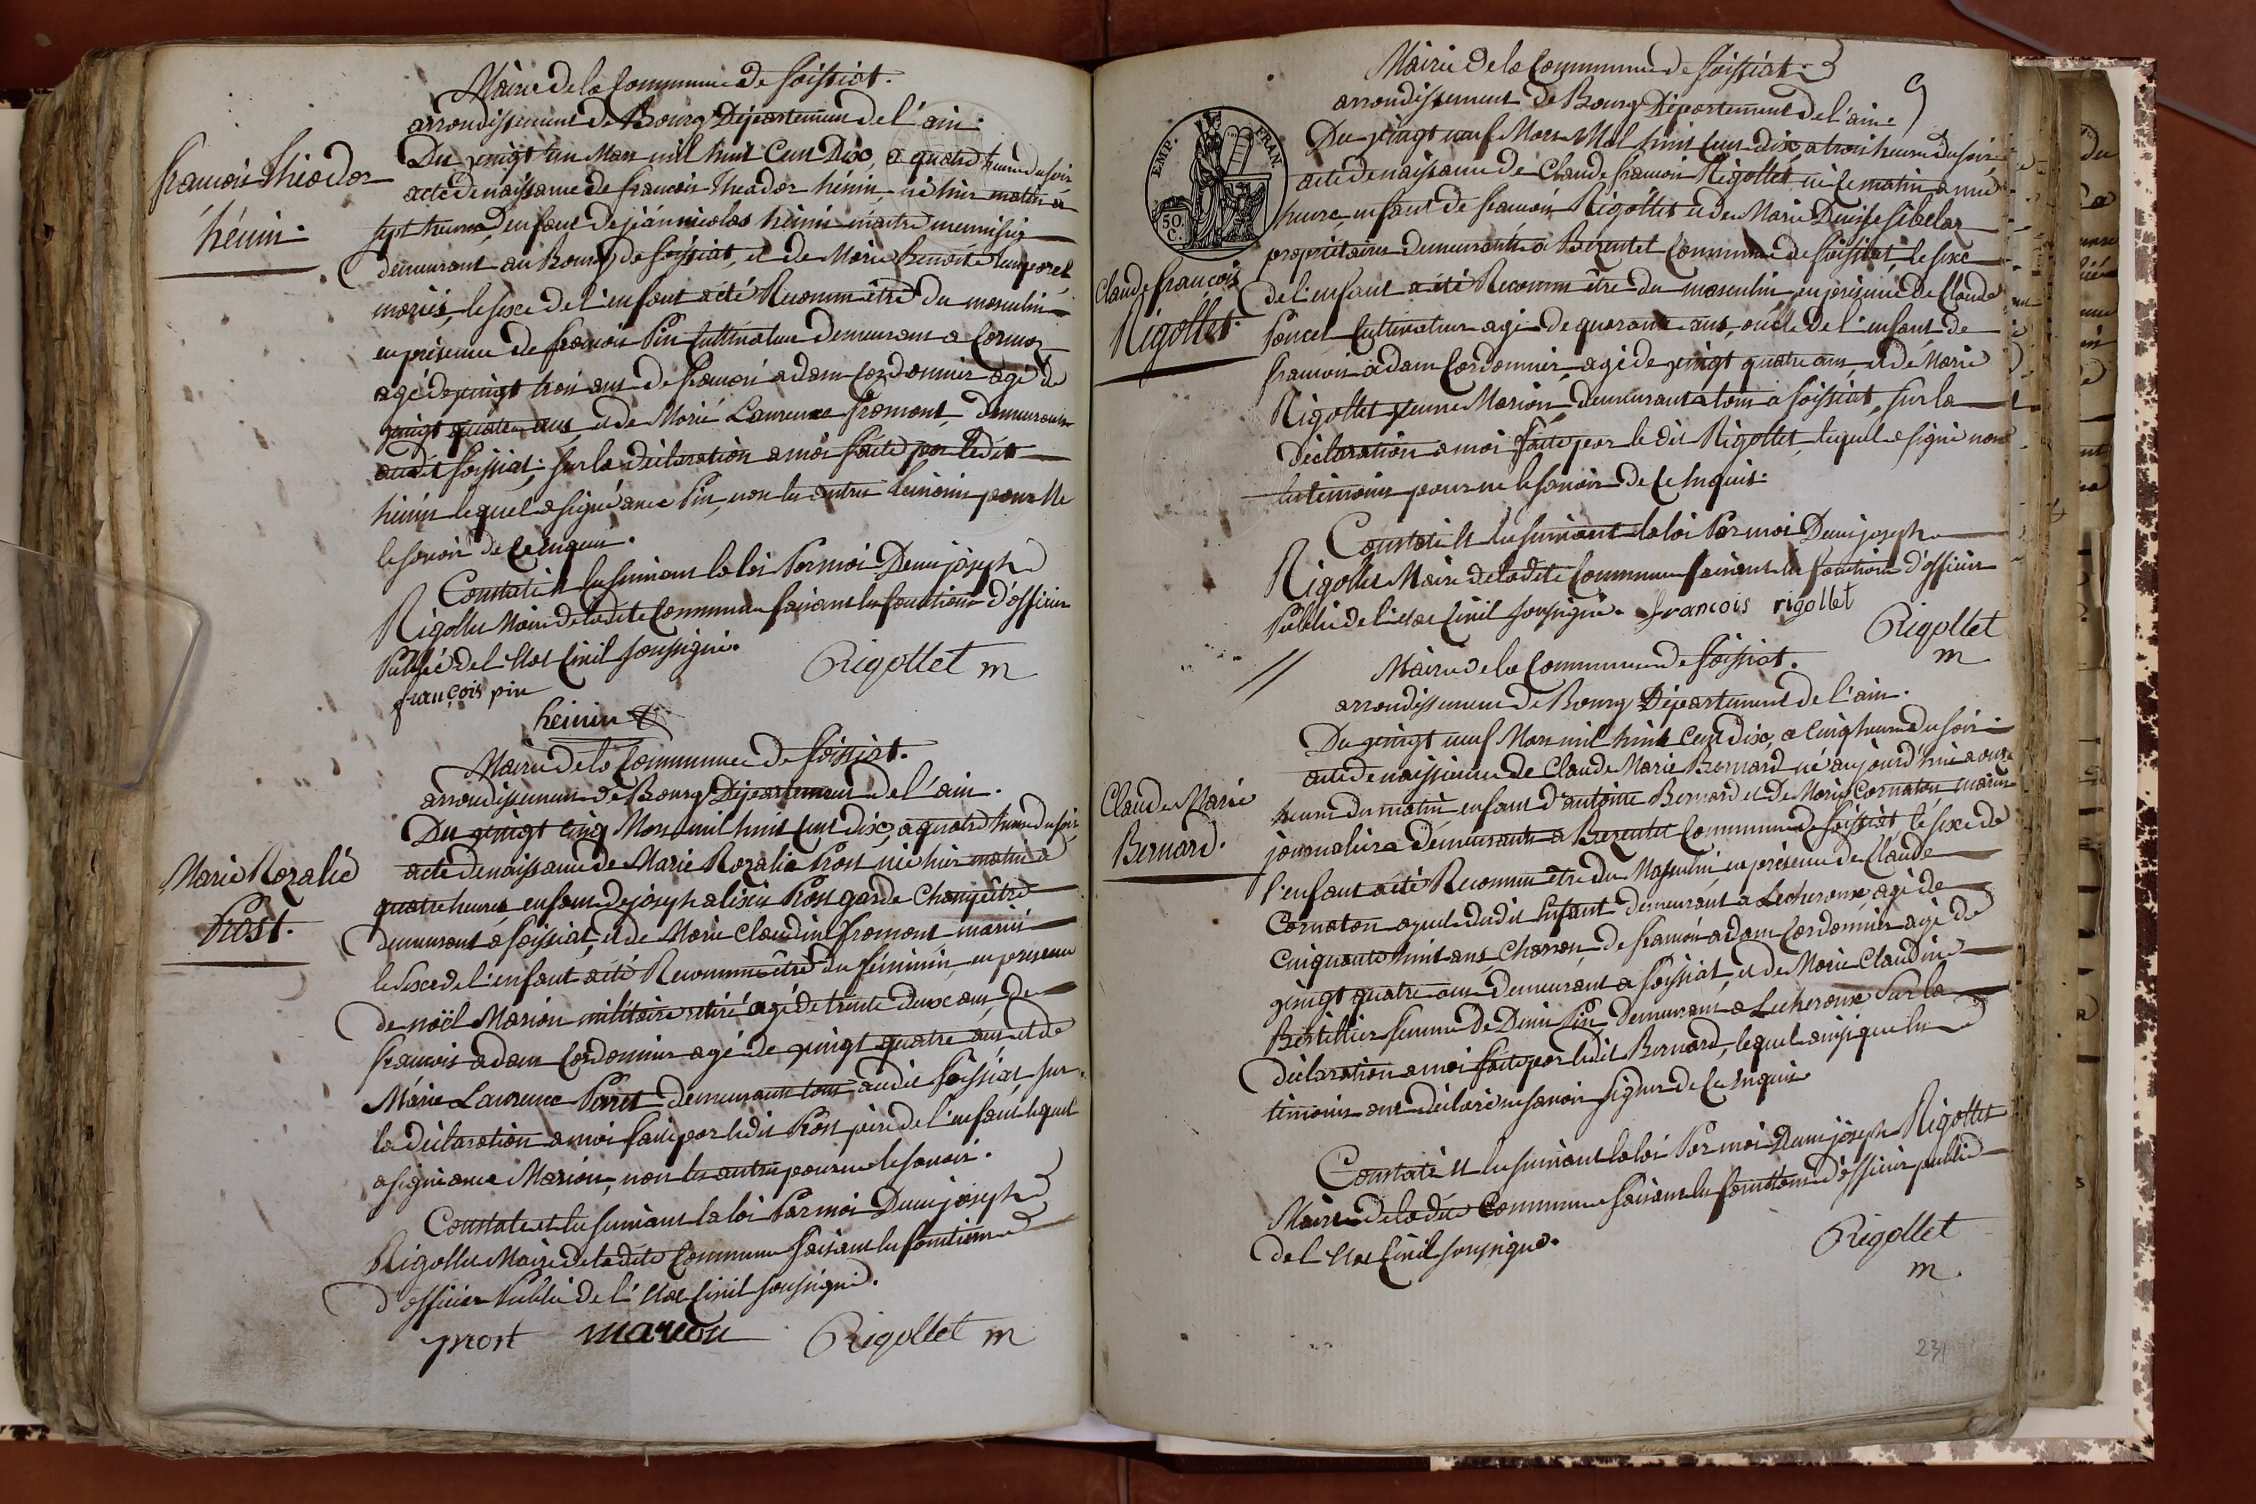 Mairie de la Commune de foissiat.
arrondissement de Bourg Département de l'ain.
françois Théodor
hénin.
Du vingt un Mars mil huit Cent Dix, a quatre heures du soir
acte de naissance de françois Théodor hénin, né hier matin a
sept heures, enfant de jean nicolas hénin maitre menuisier
demeurant au Bourg de foissiat, et de Marie Benoite
mariés, le sexe de l'enfant a été Reconnu être du masculin
en présence de françois Pin Cultivateur demeurant a Cormoz
agé de vingt trois ans de françois adam Cordonnier agé de
vingt quatre ans, et de Marie Laurence fromont, demeurants
audit foissiat. sur la déclaration a moi faite par ledit
hénin lequel a signé avec Pin, non les autres témoins pour ne
le savoir de ce Enquis.
Constaté et lu suivant la loi Par moi Denis joseph
Rigollet Maire de ladite Commune faisant les fonctions d'officier
Public de l'état Civil soussigné.
françois pin
Rigollet m
heinin
Mairie de la Commune de foissiat.
arrondissement de Bourg Département de l'ain.
Marie Rozalie
Prost.
Du vingt cinq Mars mil huit Cent dix, a quatre heures du soir
acte de naissance de Marie Rozalie Prost née hier matin a
quatre heures, enfant de joseph alexis Prost garde Champêtre
demeurant a foissiat, et de Marie Claudine fromont mariés
le sexe de l'enfant a été Reconnu être du féminin, en présence
de noël Marion militaire retiré agé de trente deux ans, de
françois adam Cordonnier agé de vingt quatre ans et de
Marie Laurence demeurants tous audit foissiat sur
la déclaration a moi faite par ledit Prost père de l'enfant lequel
a signé avec Marion, non les autres pour ne le savoir.
Constaté et lu suivant la loi Par moi Denis joseph
Rigollet Maire de ladite Commune faisant les fonctions
d'officier Public de l'état Civil soussigné.
prost marion Rigollet m
Mairie de la Commune de foissiat
9
arrondissement de Bourg Département de l'ain
EMP. FRAN.
50. C.
Claude françois
Rigollet.
Du vingt neuf Mars Mil huit Cent dix, a trois heures du soir
acte de naissance de Claude françois Rigollet, né ce matin a une
heure, enfant de françois Rigollet et de Marie Denise Sibelas
propriétaires demeurants a Bezentet Commune de foissiat, le sexe
de l'enfant a été Reconnu être du masculin, en présence de Claude
Poncet Cultivateur agé de quarante ans, oncle de l'enfant de
françois adam Cordonnier agé de vingt quatre ans, et de Marie
Rigollet femme Marion, demeurants tous a foissiat, sur la
déclaration a moi faite par le dit Rigollet, lequel a signé non
les témoins pour ne le savoir de ce Enquis.
Constaté et lu suivant la loi Par moi Denis joseph
Rigollet Maire de ladite Commune faisant les fonctions d'officier
Public de l'état Civil soussigné. francois rigollet
Rigollet
m
Mairie de la Commune de foissiat.
arrondissement de Bourg Département de l'ain.
Claude Marie
Bernard.
Du vingt neuf Mars mil huit Cent dix, a cinq heures du soir
acte de naissance de Claude Marie Bernard né aujourd'hui a onze
heures du matin enfant d'antoine Bernard et de Marie Cornaton mariés
journaliers demeurants a Bezentet Commune de foissiat, le sexe de
l'enfant a été Reconnu être du Masculin, en présence de Claude
Cornaton ayeul dudit Enfant demeurant a Lescheroux, agé de
Cinquante huit ans, Charron, de françois adam Cordonnier agé de
vingt quatre ans demeurant a foissiat, et de Marie Claudine
Berthillier femme de Denis Pin demeurant a Lescheroux sur la
déclaration a moi faite par ledit Bernard, lequel ainsi que les
témoins ont déclaré ne savoir signer de ce Enquis
Constaté et lu suivant la loi Par moi Denis joseph Rigollet
Maire de la dite Commune faisant les fonctions d'officier public
de l'état Civil soussigné.
Rigollet
m.
231